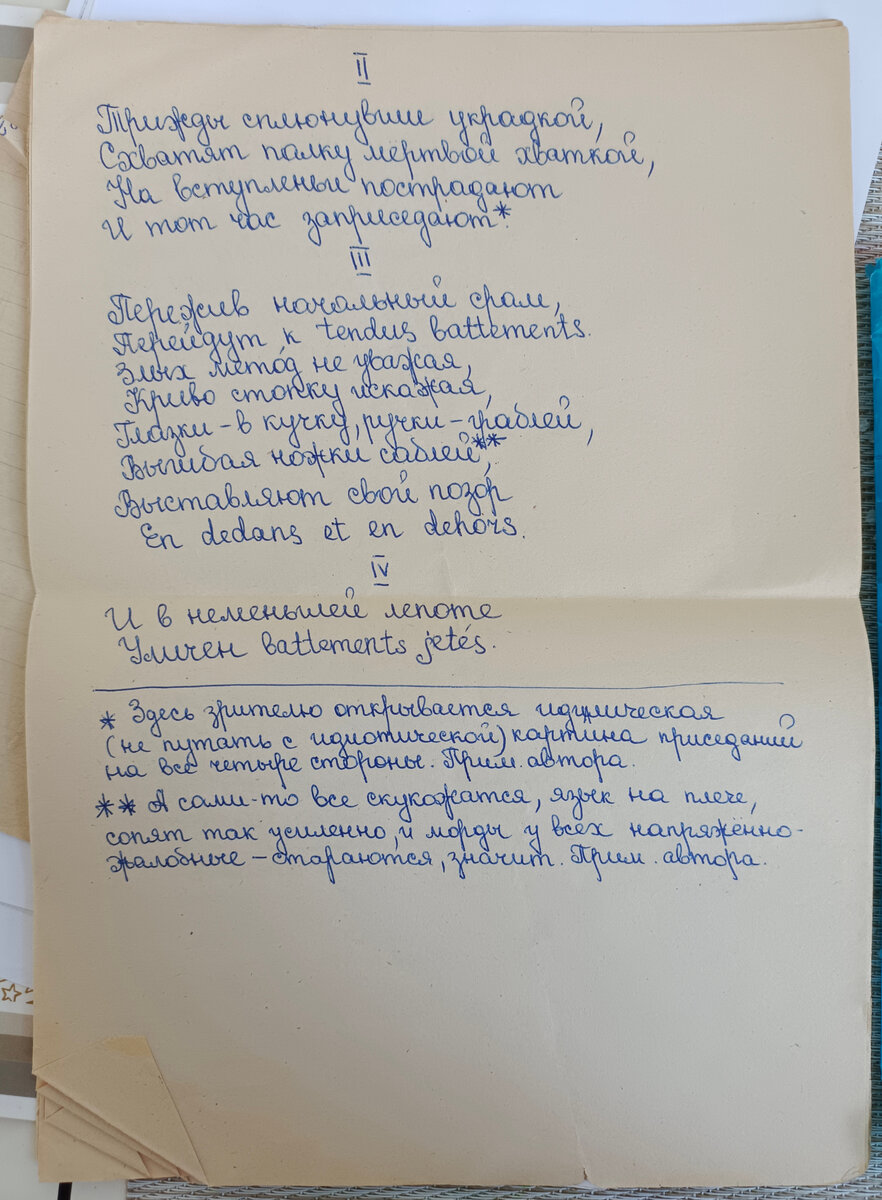 II
Трижды сплюнувши украдкой,
Схватят палку мёртвой хваткой,
На вступленьи пострадают
И тот час заприседают*.
III
Пережив начальный срам,
Перейдут к tendus battements.
Злых метод не уважая,
Криво стопку искажая,
Глазки - в кучку, ручки - граблей,
Выгибая ножки саблей**,
Выставляют свой позор
En dedans et en dehors.
IV
И в неменьшей лепоте
Уличен battements jetés.
* Здесь зрителю открывается идиллическая
(не путать с идиотической) картина приседаний
на все четыре стороны. Прим. автора.
** А сами-то все скукожатся, язык на плече,
сопят так усиленно, и морды у всех напряжённо-
жалобные - стараются, значит. Прим. автора.